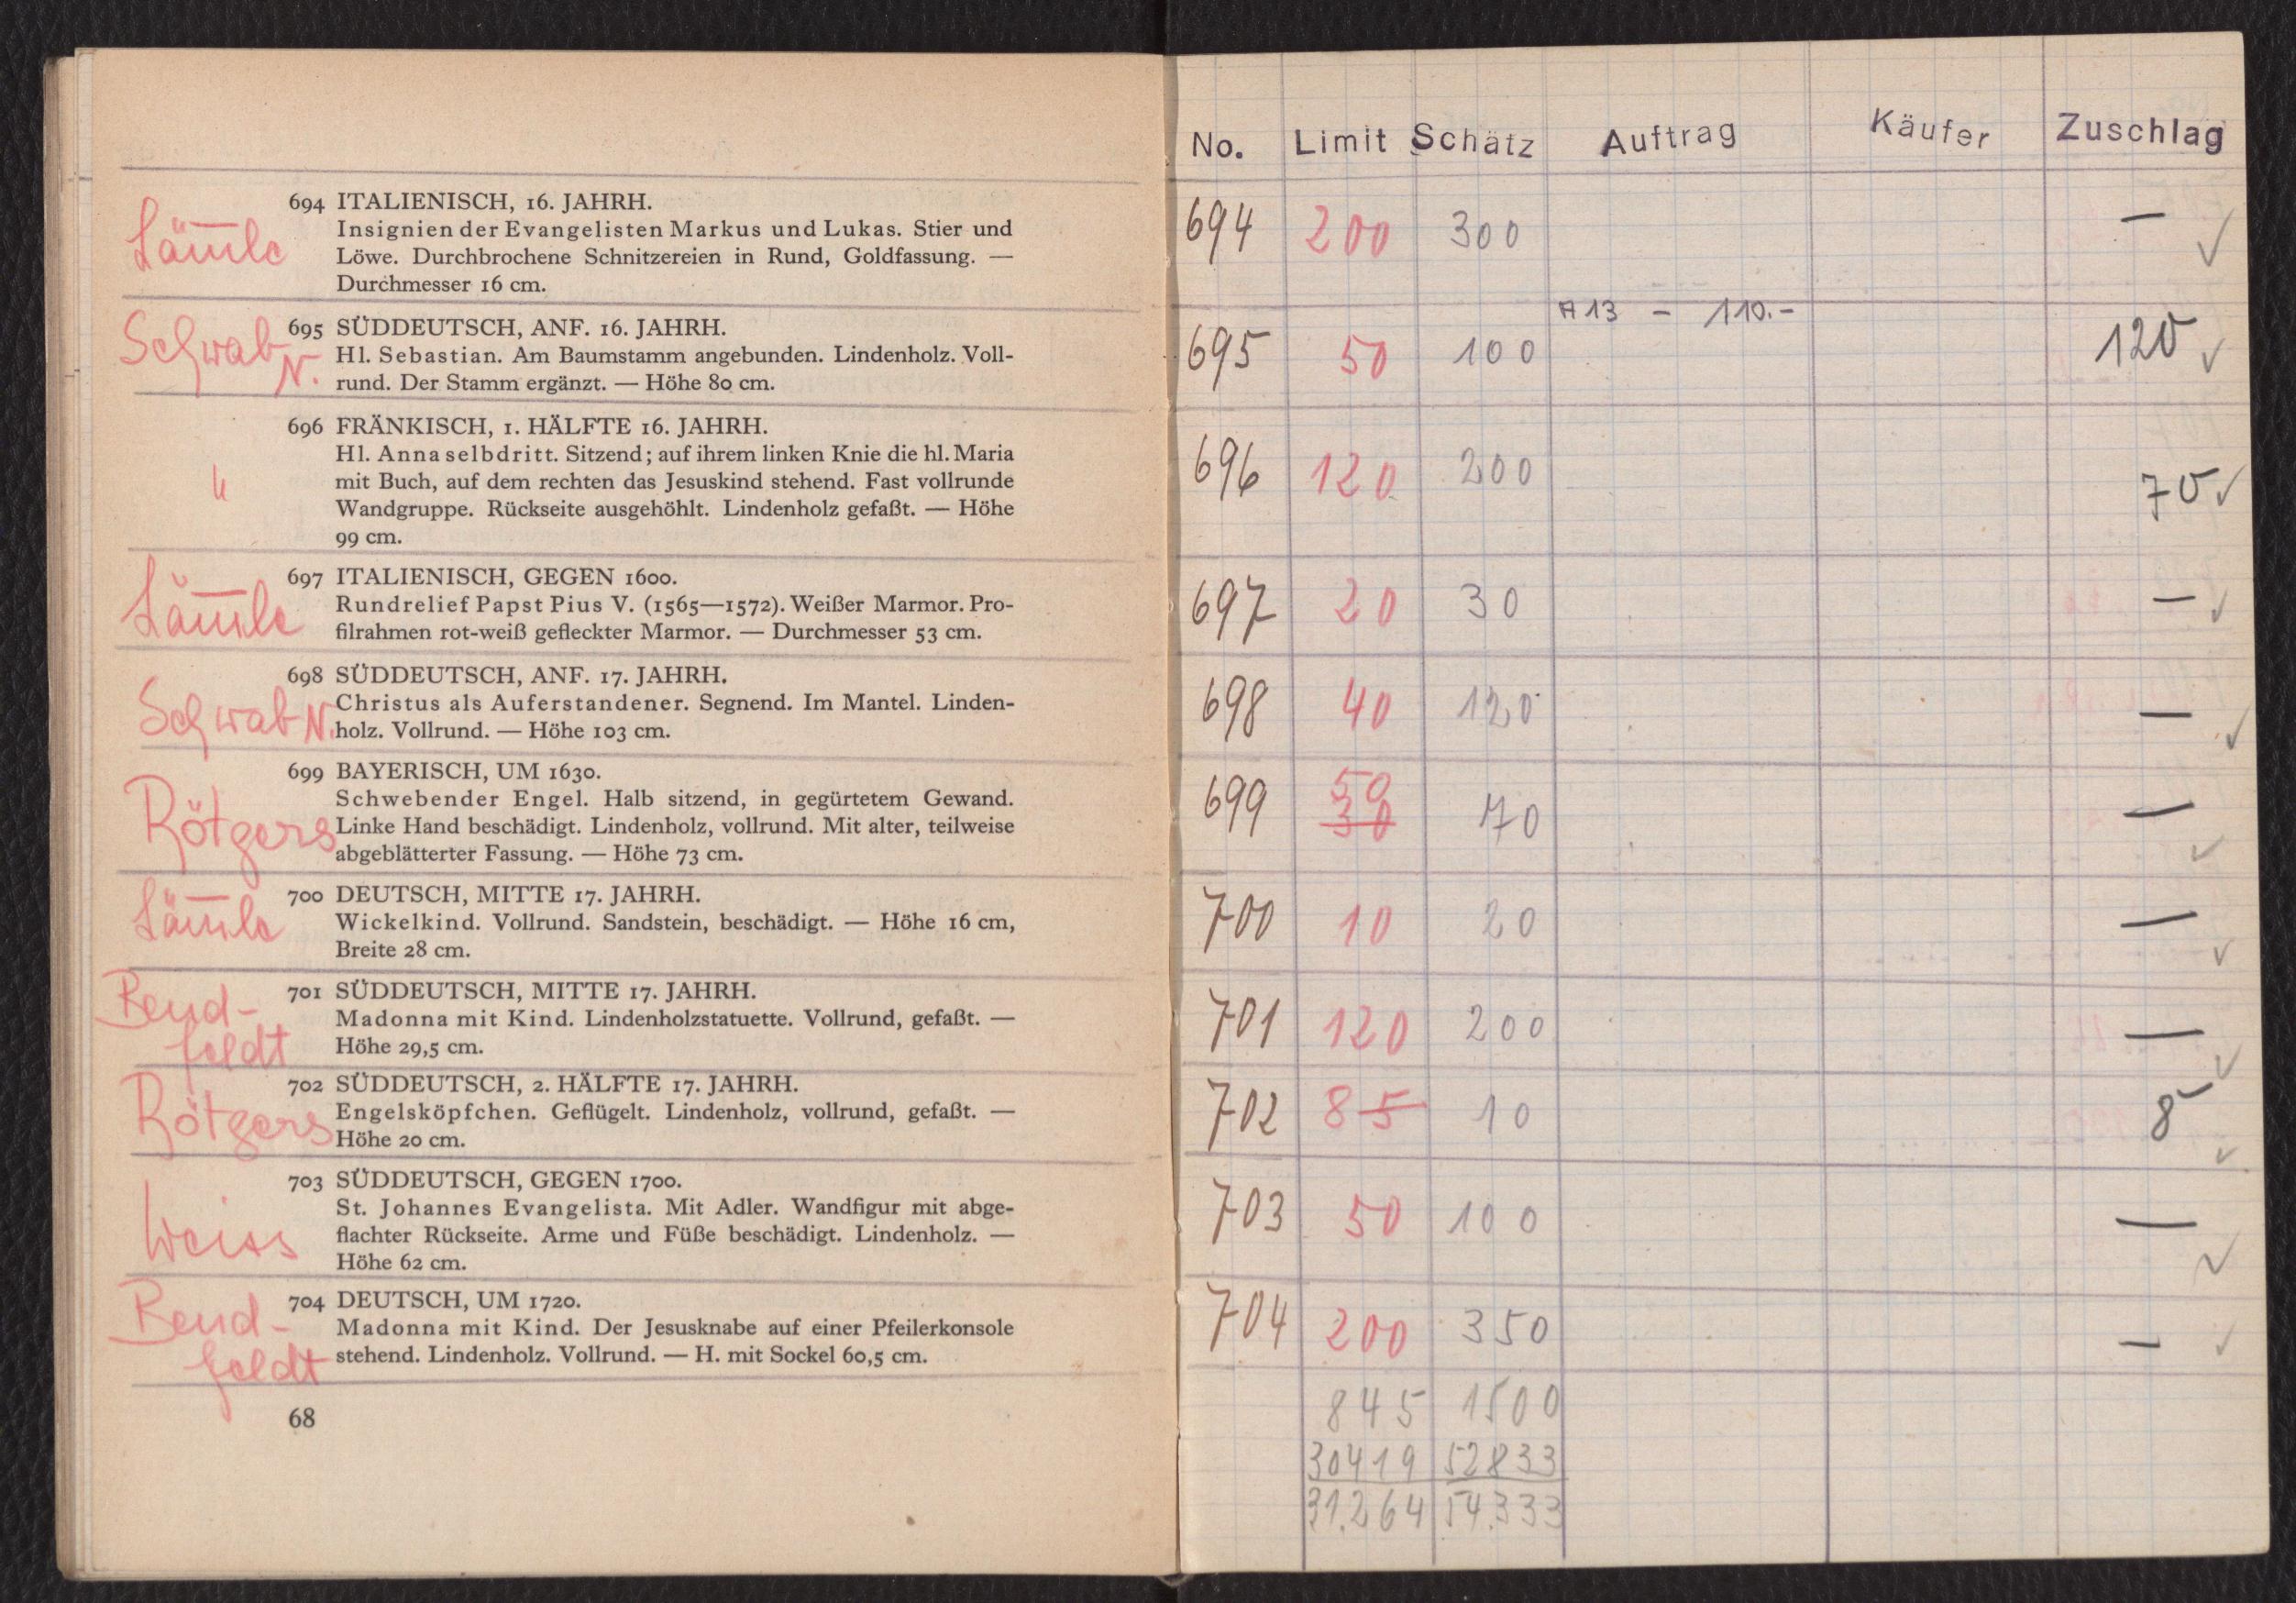 694 ITALIENISCH, 16. JAHRH.
Insignien der Evangelisten Markus und Lukas. Stier und
Löwe. Durchbrochene Schnitzereien in Rund, Goldfassung. —
Durchmesser 16 cm.
Schwab N.
695 SÜDDEUTSCH, ANF. 16. JAHRH.
Hl. Sebastian. Am Baumstamm angebunden. Lindenholz. Voll-
rund. Der Stamm ergänzt. — Höhe 80 cm.
"
696 FRÄNKISCH, 1. HÄLFTE 16. JAHRH.
Hl. Anna selbdritt. Sitzend; auf ihrem linken Knie die hl. Maria
mit Buch, auf dem rechten das Jesuskind stehend. Fast vollrunde
Wandgruppe. Rückseite ausgehöhlt. Lindenholz gefaßt. — Höhe
99 cm.
697 ITALIENISCH, GEGEN 1600.
Rundrelief Papst Pius V. (1565—1572). Weißer Marmor. Pro-
filrahmen rot-weiß gefleckter Marmor. — Durchmesser 53 cm.
Schwab N.
698 SÜDDEUTSCH, ANF. 17. JAHRH.
Christus als Auferstandener. Segnend. Im Mantel. Linden-
holz. Vollrund. — Höhe 103 cm.
Rötgers
699 BAYERISCH, UM 1630.
Schwebender Engel. Halb sitzend, in gegürtetem Gewand.
Linke Hand beschädigt. Lindenholz, vollrund. Mit alter, teilweise
abgeblätterter Fassung. — Höhe 73 cm.
700 DEUTSCH, MITTE 17. JAHRH.
Wickelkind. Vollrund. Sandstein, beschädigt. — Höhe 16 cm,
Breite 28 cm.
Bend-
feldt
701 SÜDDEUTSCH, MITTE 17. JAHRH.
Madonna mit Kind. Lindenholzstatuette. Vollrund, gefaßt. —
Höhe 29,5 cm.
Rötgers
702 SÜDDEUTSCH, 2. HÄLFTE 17. JAHRH.
Engelsköpfchen. Geflügelt. Lindenholz, vollrund, gefaßt. —
Höhe 20 cm.
Weiss
703 SÜDDEUTSCH, GEGEN 1700.
St. Johannes Evangelista. Mit Adler. Wandfigur mit abge-
flachter Rückseite. Arme und Füße beschädigt. Lindenholz. —
Höhe 62 cm.
Bend-
feldt
704 DEUTSCH, UM 1720.
Madonna mit Kind. Der Jesusknabe auf einer Pfeilerkonsole
stehend. Lindenholz. Vollrund. — H. mit Sockel 60,5 cm.
68
No. Limit Schätz Auftrag Käufer Zuschlag
694 200 300 — ✓
A 13 — 110.-
695 50 100 120 ✓
696 120 200 70 ✓
697 20 30 — ✓
698 40 120 — ✓
50
699 30 70 — ✓
700 10 20 — ✓
701 120 200 — ✓
702 8 5 10 8 ✓
703 50 100 — ✓
704 200 350 — ✓
845 1500
30419 52833
31.264 54.333